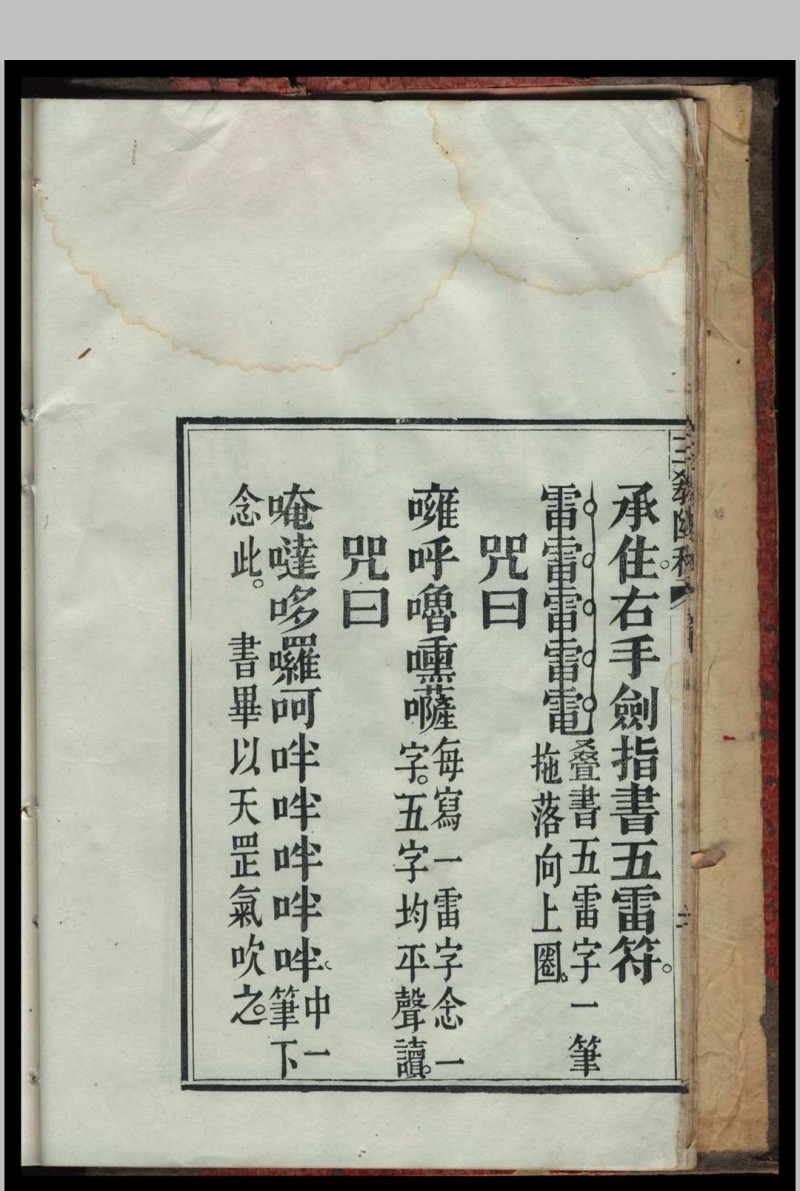 承住。右手劍指書五雷符。
雷雷雷雷電
疊書五雷字一筆
拖落向上圈。
咒曰
嗈呼嚕㗲
每寫一雷字念一
字。五字均平聲讀。
咒曰
唵噠哆囉呵吽吽吽吽吽。
中一
筆下
念此。 書畢以天罡氣吹之。